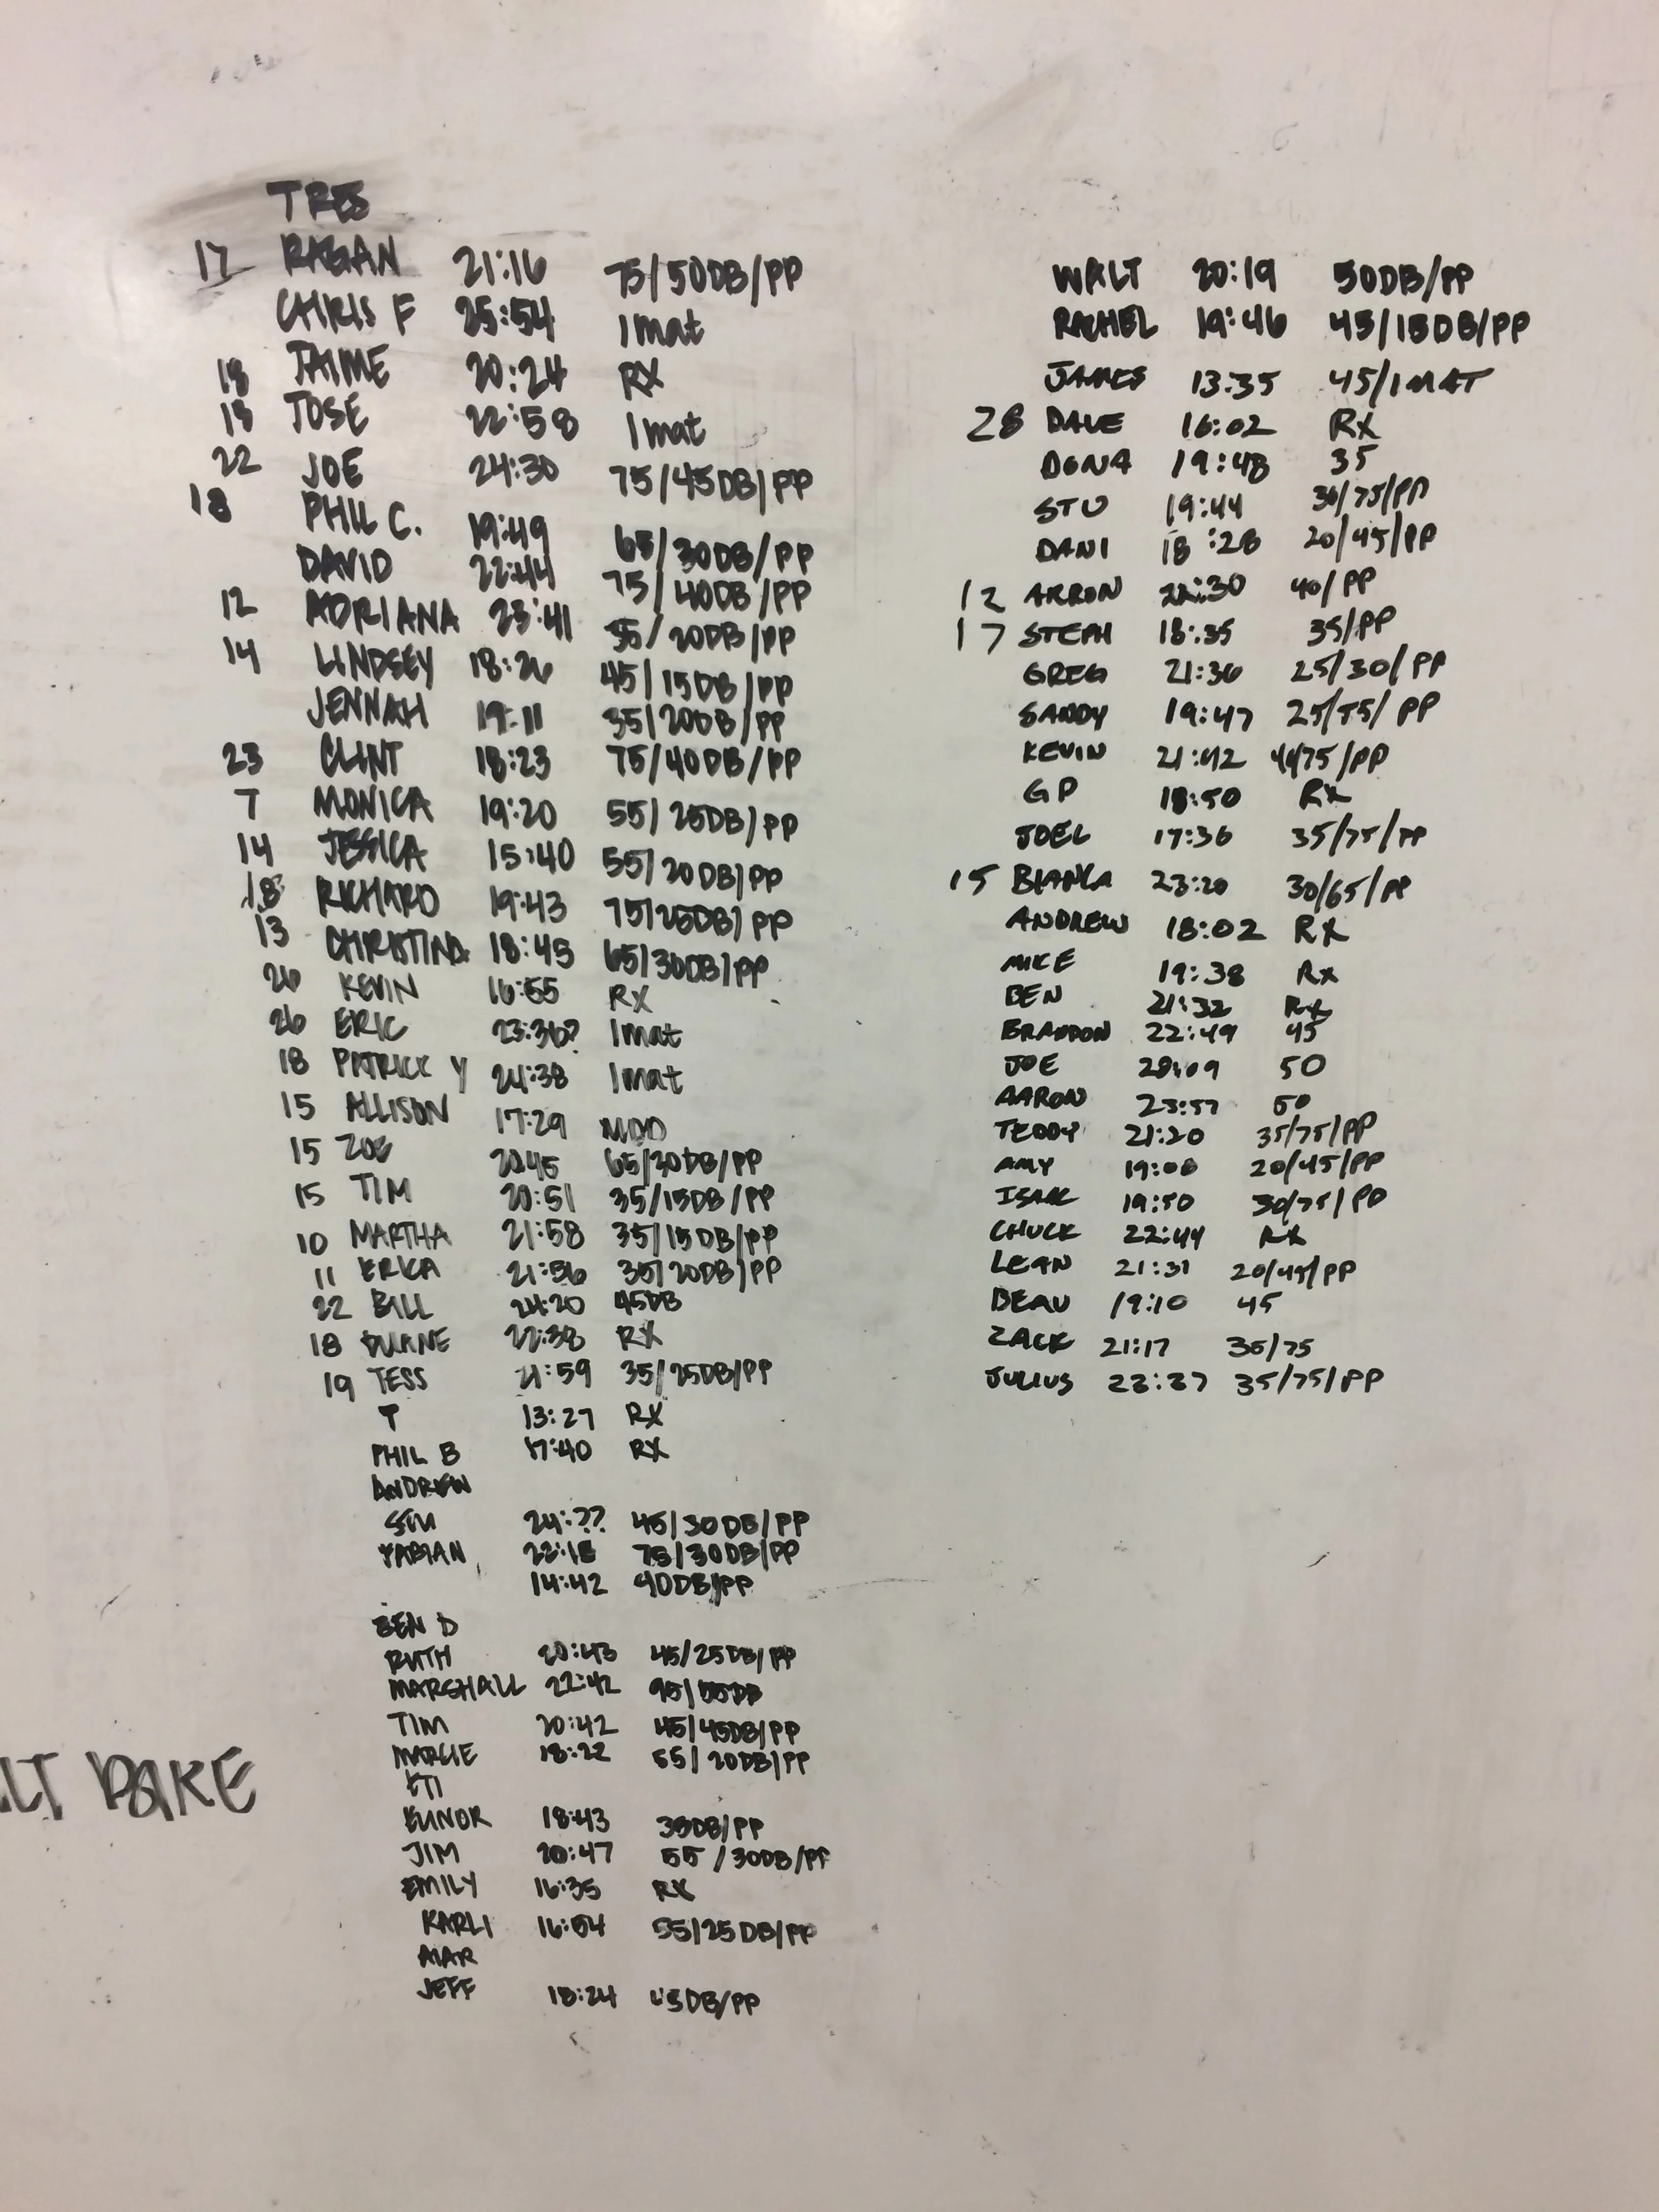 TRES
17 RAGAN 21:16 75/50DB/PP
CHRIS F 25:54 1mat
18 JAIME 20:24 RX
18 JOSE 22:58 1mat
22 JOE 24:30 75/45DB/PP
18 PHIL C. 19:49 65/30DB/PP
DAVID 22:44 75/40DB/PP
12 ADRIANA 23:41 55/20DB/PP
14 LINDSEY 18:26 45/15DB/PP
JENNAH 19:11 35/20DB/PP
23 CLINT 18:23 75/40DB/PP
7 MONICA 19:20 55/25DB/PP
14 JESSICA 15:40 55/20DB/PP
18 RICHARD 19:43 75/25DB/PP
13 CHRISTINA 18:45 65/30DB/PP
26 KEVIN 16:55 RX
26 ERIC 23:36? 1mat
18 PATRICK Y 24:38 1mat
15 ALLISON 17:29 MOD
15 ZOE 20:45 65/30DB/PP
15 TIM 20:51 35/15DB/PP
10 MARTHA 21:58 35/15DB/PP
11 ERICA 21:56 35/20DB/PP
22 BILL 24:20 45DB
18 DUANE 22:38 RX
19 TESS 21:59 35/25DB/PP
T 13:27 RX
PHIL B 17:40 RX
ANDREW
24:?? 45/30DB/PP
FABIAN 22:18 75/30DB/PP
14:42 40DB/PP
BEN D
RUTH 20:43 45/25DB/PP
MARSHALL 22:42 95/55DB
TIM 20:42 45/45DB/PP
MARCIE 18:22 55/20DB/PP
ETI
ELINOR 18:43 35DB/PP
JIM 20:47 55/30DB/PP
EMILY 16:35 RX
KARLI 16:54 55/25DB/PP
JEFF 18:24 45DB/PP
LT BAKE
WALT 20:19 50DB/PP
RACHEL 19:46 45/15DB/PP
JAMES 13:35 45/1MAT
28 DAVE 16:02 RX
DONA 19:48 35
STU 19:44 30/75/PP
DANI 18:28 20/45/PP
12 ARRON 22:30 40/PP
17 STEPH 18:35 35/PP
GREG 21:36 25/30/PP
SANDY 19:47 25/55/PP
KEVIN 21:42 40/75/PP
GP 18:50 RX
JOEL 17:36 35/75/PP
15 BIANCA 23:20 30/65/PP
ANDREW 18:02 RX
MIKE 19:38 Rx
BEN 21:32 Rx
BRANDON 22:49 45
JOE 20:09 50
AARON 23:57 50
TEDDY 21:20 35/75/PP
AMY 19:06 20/45/PP
ISAAC 19:50 30/75/PP
CHUCK 22:44 RX
LEAN 21:31 20/45/PP
BEAU 19:10 45
ZACK 21:17 35/75
JULIUS 23:37 35/75/PP